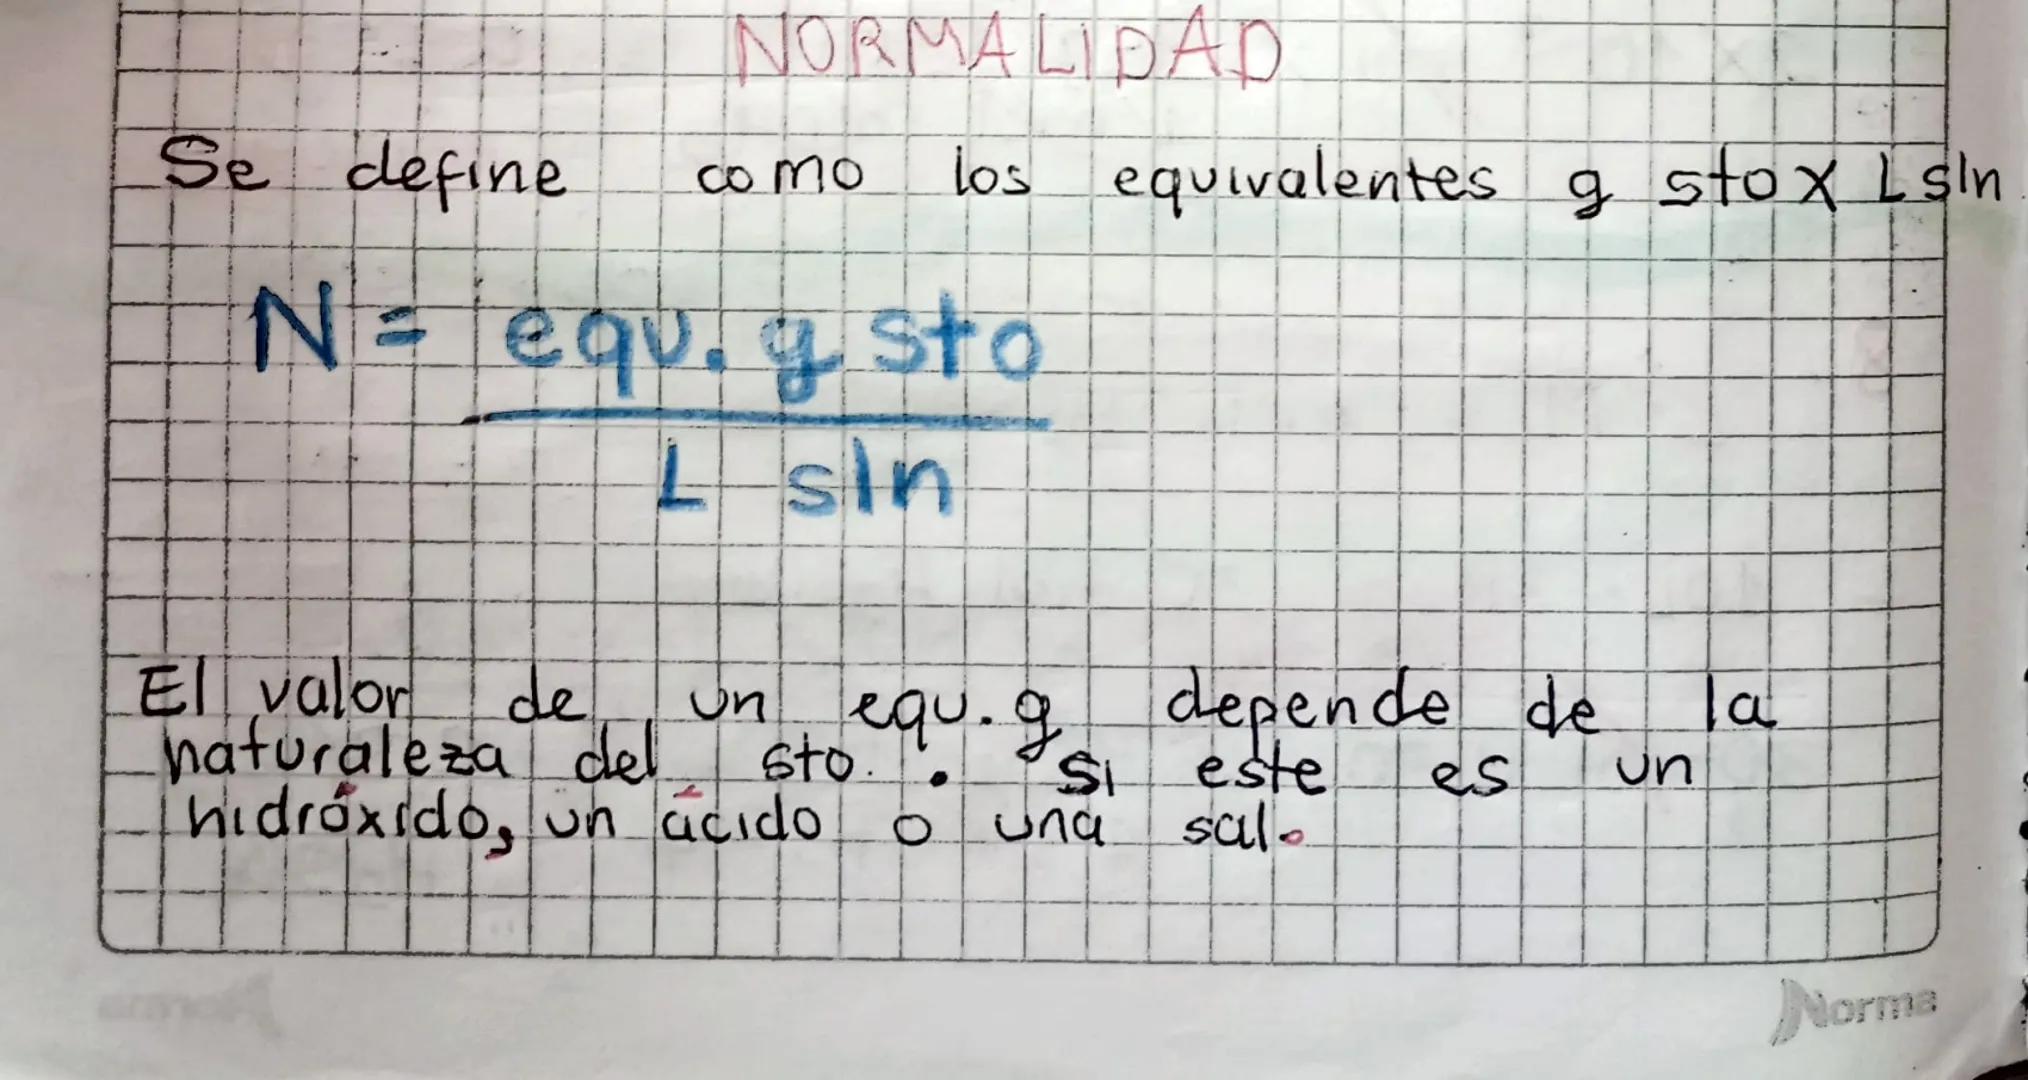 NORMALIDAD
Se define como los equivalentes g sto x L sln
N = equ. g sto
L sln
El valor de un equ. g depende de la
naturaleza del sto. . Si este es un
hidróxido, un ácido o una sal.
Norma